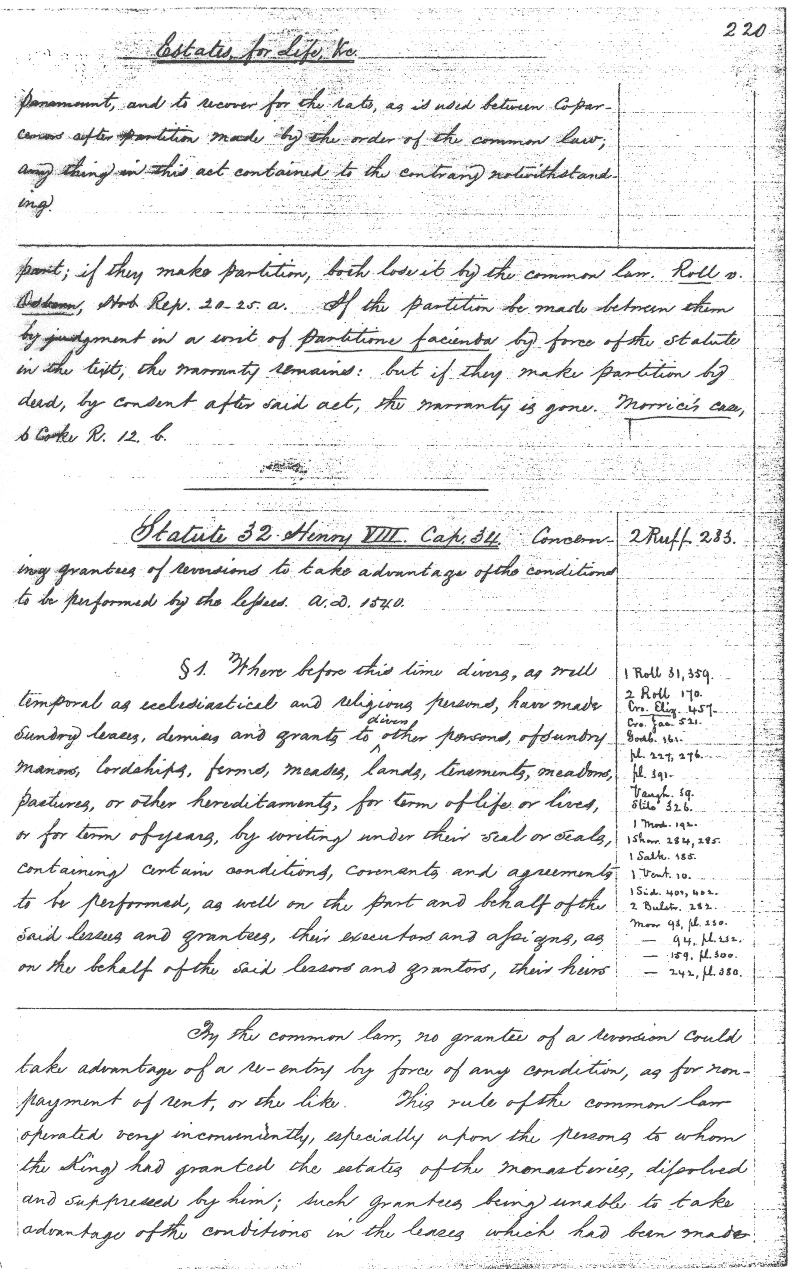 220
Estates, for Life, &c.
paramount, and to recover for the rate, as is used between Copar-
ceners after partition made by the order of the common law,
any thing in this act contained to the contrary notwithstand-
ing.
part; if they make partition, both lose it by the common law. Roll v.
Osborn, Hob. Rep. 20-25. a. If the partition be made between them
by judgment in a writ of partitione facienda by force of the statute
in the text, the warranty remains: but if they make partition by
deed, by consent after said act, the warranty is gone. Morrice's case,
6 Coke R. 12. b.
Statute 32 Henry VIII. Cap. 34 Concern-
ing grantees of reversions to take advantage of the conditions
to be performed by the lessees. A.D. 1540.
2 Ruff. 283.
§1. Where before this time divers, as well
temporal as ecclesiastical and religious persons, have made
sundry leases, demises and grants to divers other persons, of sundry
manors, lordships, ferms, meases, lands, tenements, meadows,
pastures, or other hereditaments, for term of life or lives,
or for term of years, by writing under their seal or seals,
containing certain conditions, covenants and agreements
to be performed, as well on the part and behalf of the
said lessees and grantees, their executors and assigns, as
on the behalf of the said lessors and grantors, their heirs
1 Roll 31, 359.
2 Roll 170.
Cro. Eliz. 457.
Cro. Jac. 521.
Godb. 161.
pl. 227, 276.
pl. 391.
Vaugh. 39.
Stile 326.
1 Mod. 192.
1 Show. 284, 285.
1 Salk. 185.
1 Vent. 10.
1 Sid. 401, 402.
2 Bulstr. 282.
Moor 93, pl. 230.
— 94, pl. 232.
— 159, pl. 300.
— 242, pl. 380.
By the common law, no grantee of a reversion could
take advantage of a re-entry by force of any condition, as for non-
payment of rent, or the like. This rule of the common law
operated very inconveniently, especially upon the persons to whom
the King had granted the estates of the monasteries, dissolved
and suppressed by him; such grantees being unable to take
advantage of the conditions in the leases which had been made